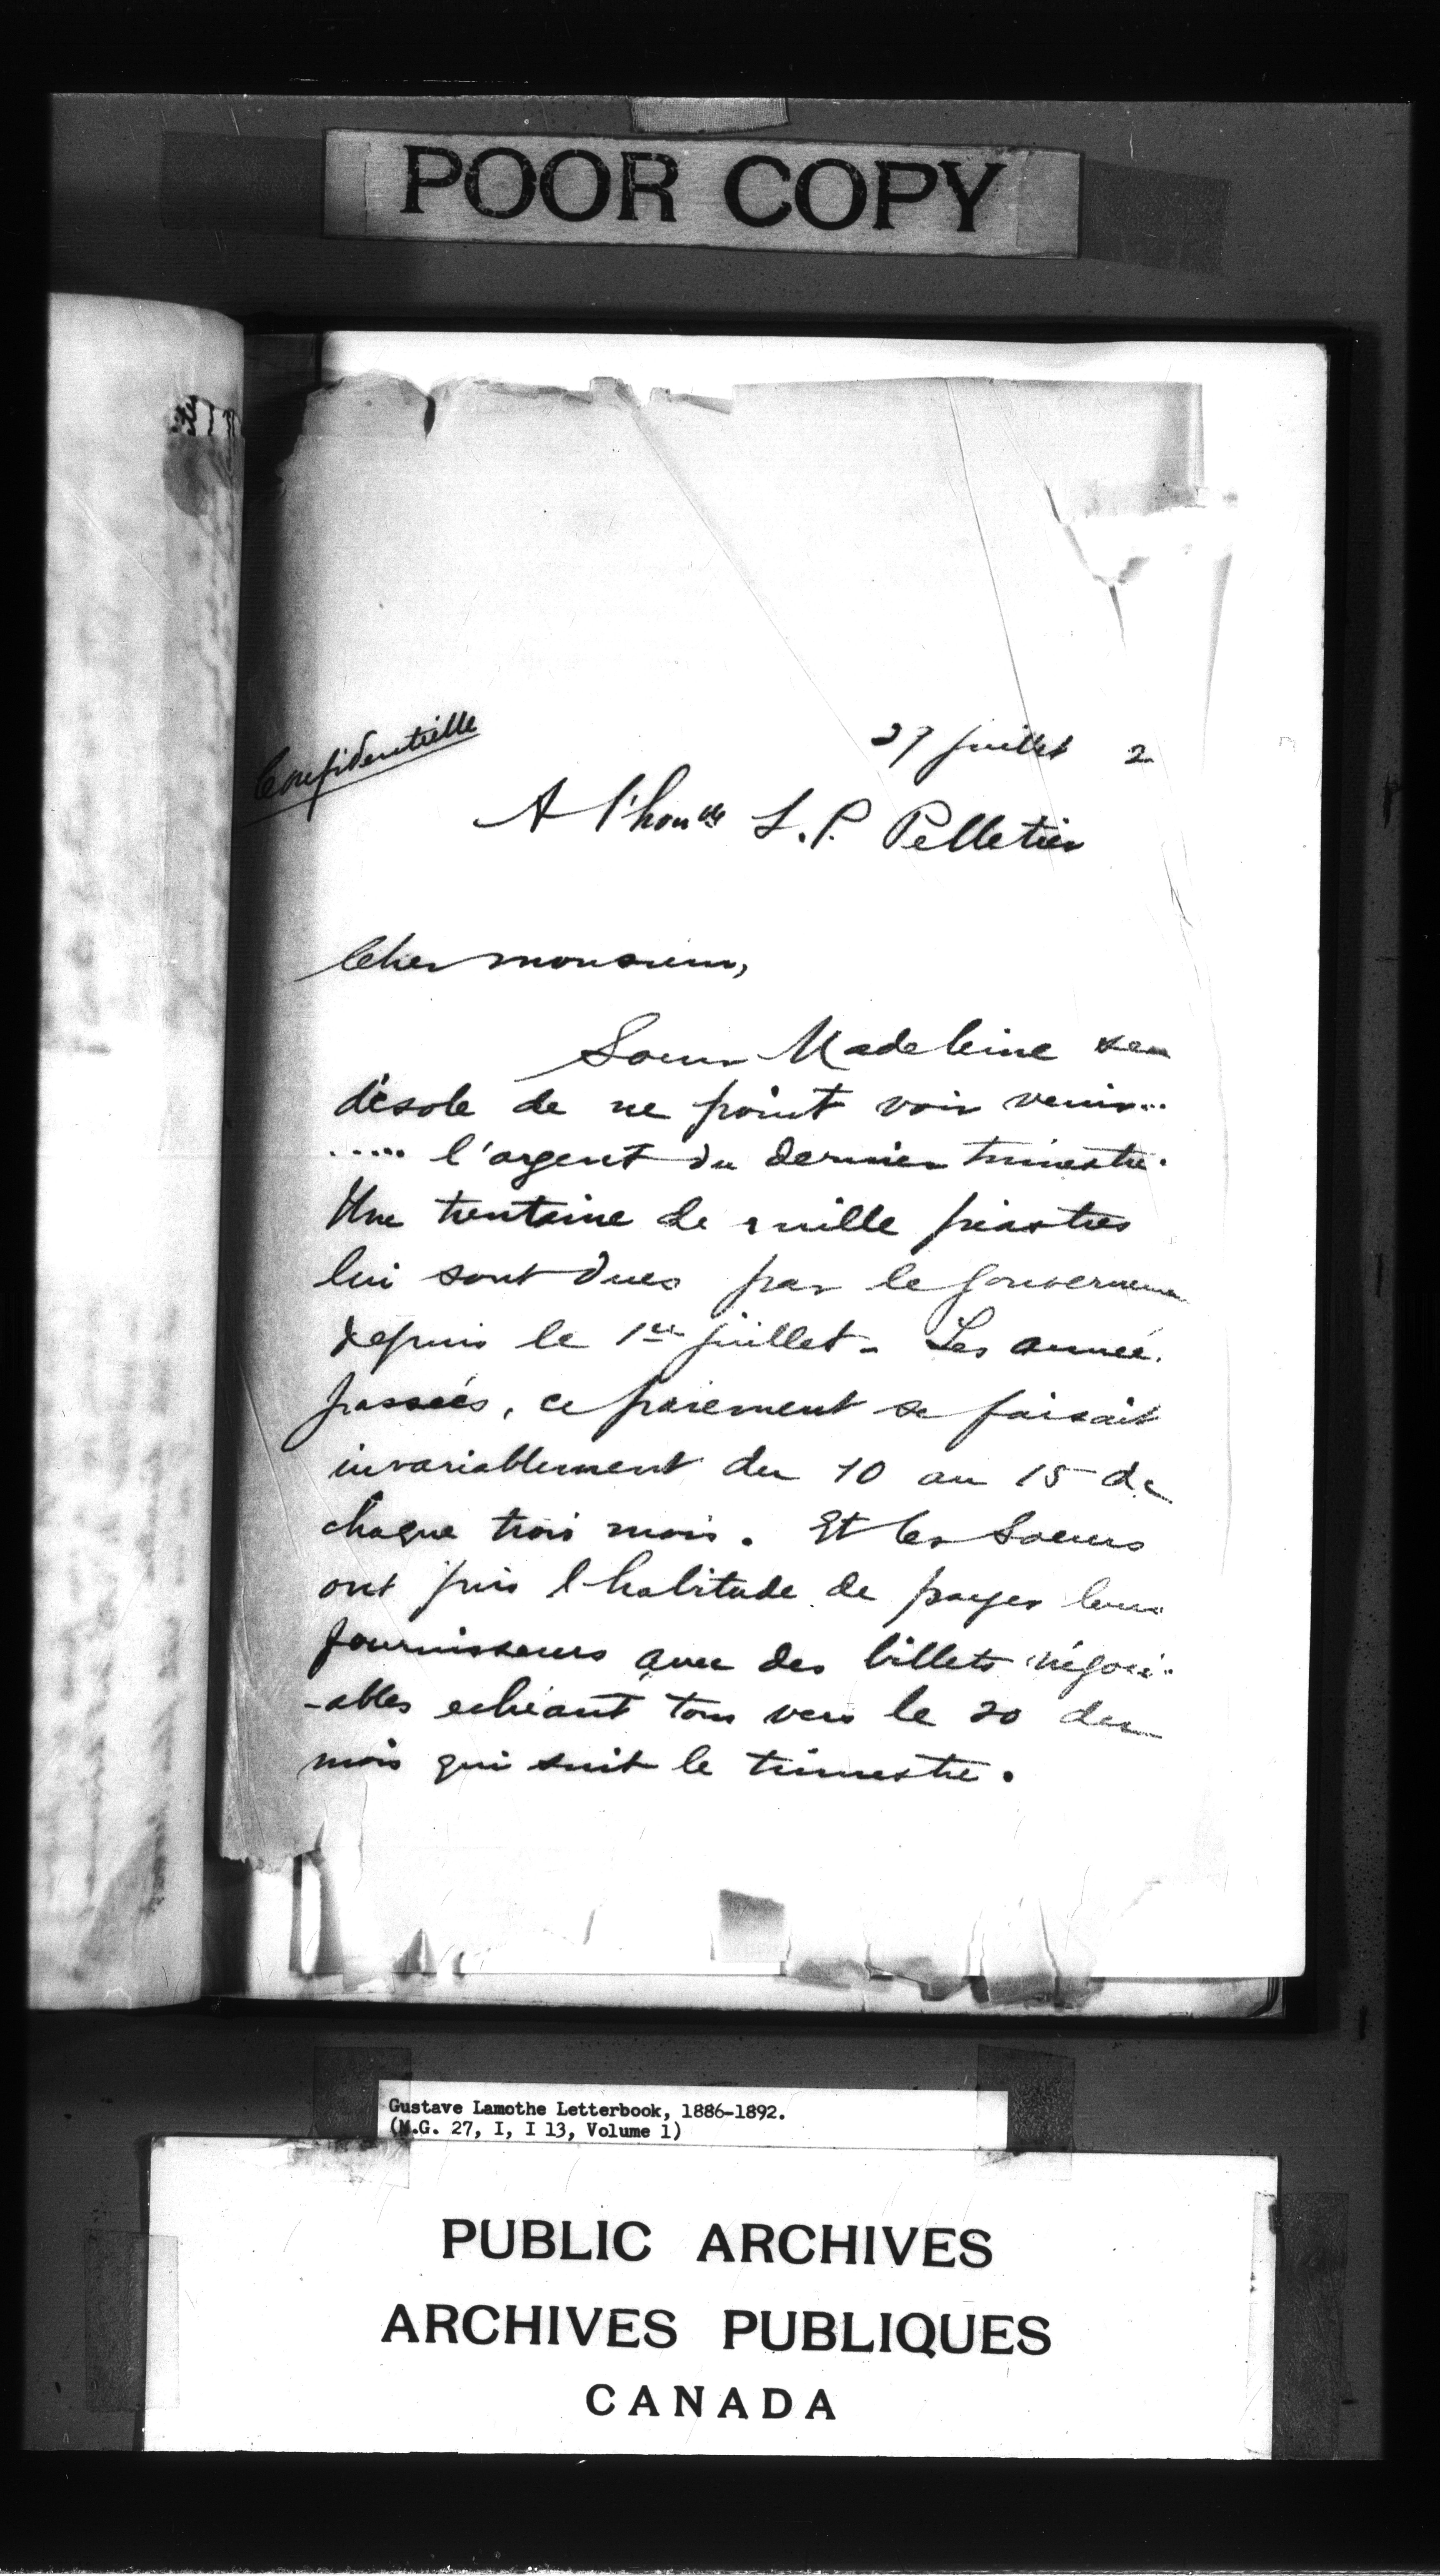 POOR COPY
Confidentielle
27 juillet 2
A l'honble L. P. Pelletier
Cher monsieur,
Soeur Madeleine se
désole de ne point voir venir...
..... l'argent du dernier trimestre.
Une trentaine de mille piastres
lui sont dues par le gouverneme
depuis le 1er juillet - Les année
passées, ce paiement se faisait
invariablement du 10 au 15 de
chaque trois mois. Et les Soeurs
ont pris l'habitude de payer leurs
fournisseurs avec des billets négoci-
-ables echéant tous vers le 20 du
mois qui suit le trimestre.
Gustave Lamothe Letterbook, 1886-1892.
(M.G. 27, I, I 13, Volume 1)
PUBLIC ARCHIVES
ARCHIVES PUBLIQUES
CANADA